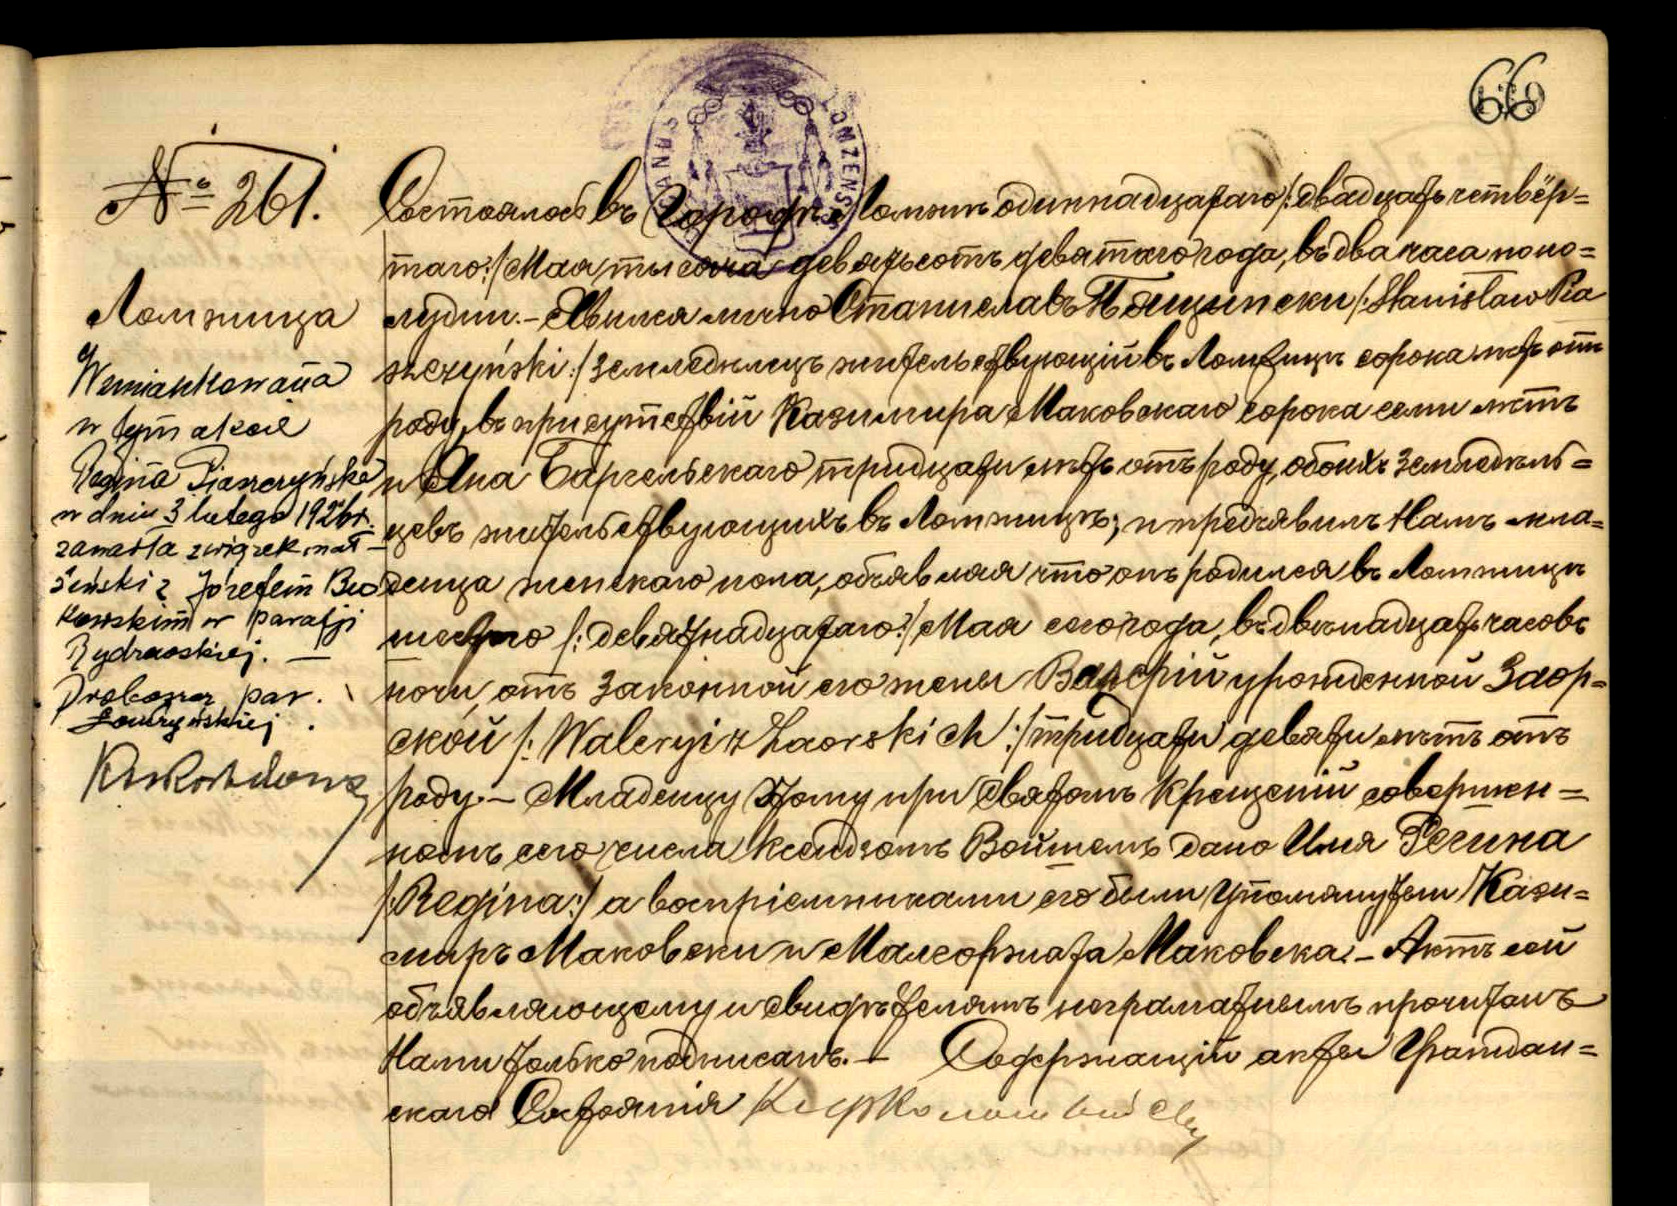 66
№ 261.
Ломжица
Wzmiankowana
w tym akcie
Regina Piaszczyńska
w dniu 3 lutego 1926 r.
zawarła związek mał-
żeński z Józefem
kowskim w parafji
Proboszcz par.
Łomżyńskiej.
Состоялось въ Городѣ Ломжѣ одиннадцатаго /: двадцать четвёр=
таго :/ Мая тысяча девятьсотъ девятаго года, въ два часа попо=
лудни. – Явился лично Станиславъ Пящински /: Stanisław Pia
szczyński :/ земледѣлецъ жительствующій въ Ломжицѣ сорока лѣтъ отъ
роду, въ присутствій Казимира Маковскаго сорока семи лѣтъ
и Яна Баргельскаго тридцати лѣтъ отъ роду, обоихъ земледѣль=
цевъ жительствующихъ въ Ломжицѣ; и предъявилъ Намъ мла=
денца женскаго пола, объявляя что онъ родился въ Ломжицѣ
шестаго /: девятнадцатаго :/ Мая сего года, въ двѣнадцать часовъ
ночи, отъ законной его жены Валерій урожденной Заор=
ской /: Waleryi z Zaorskich :/ тридцати девяти лѣтъ отъ
роду. – Младенцу этому при Святомъ Крещеній совершен=
номъ сего числа Ксендзомъ дано Имя Регина
/: Regina :/ а воспріемниками его были Упомянутый Кази=
миръ Маковски и Малгоржата Маковска. – Актъ сей
объявляющему и свидѣтелямъ неграматнымъ прочитанъ
Нами только подписанъ. – Содержащій акты Граждан=
скаго Состоянія